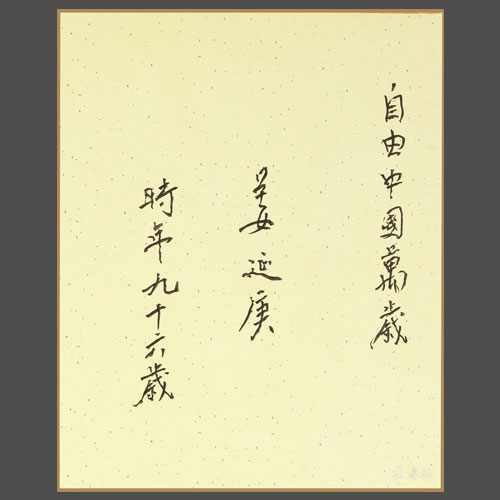 自由中國萬歲
晏延庚
時年九十六歲